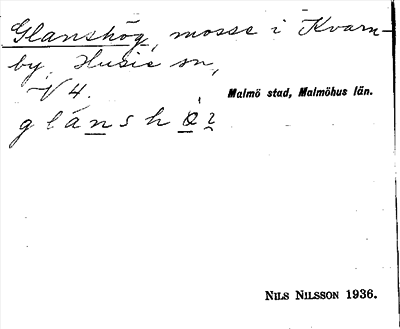 Glanshög, mosse i Kvarn-
by, Husie sn,
V 4.
Malmö stad, Malmöhus län.
glánshö̀2
NILS NILSSON 1936.